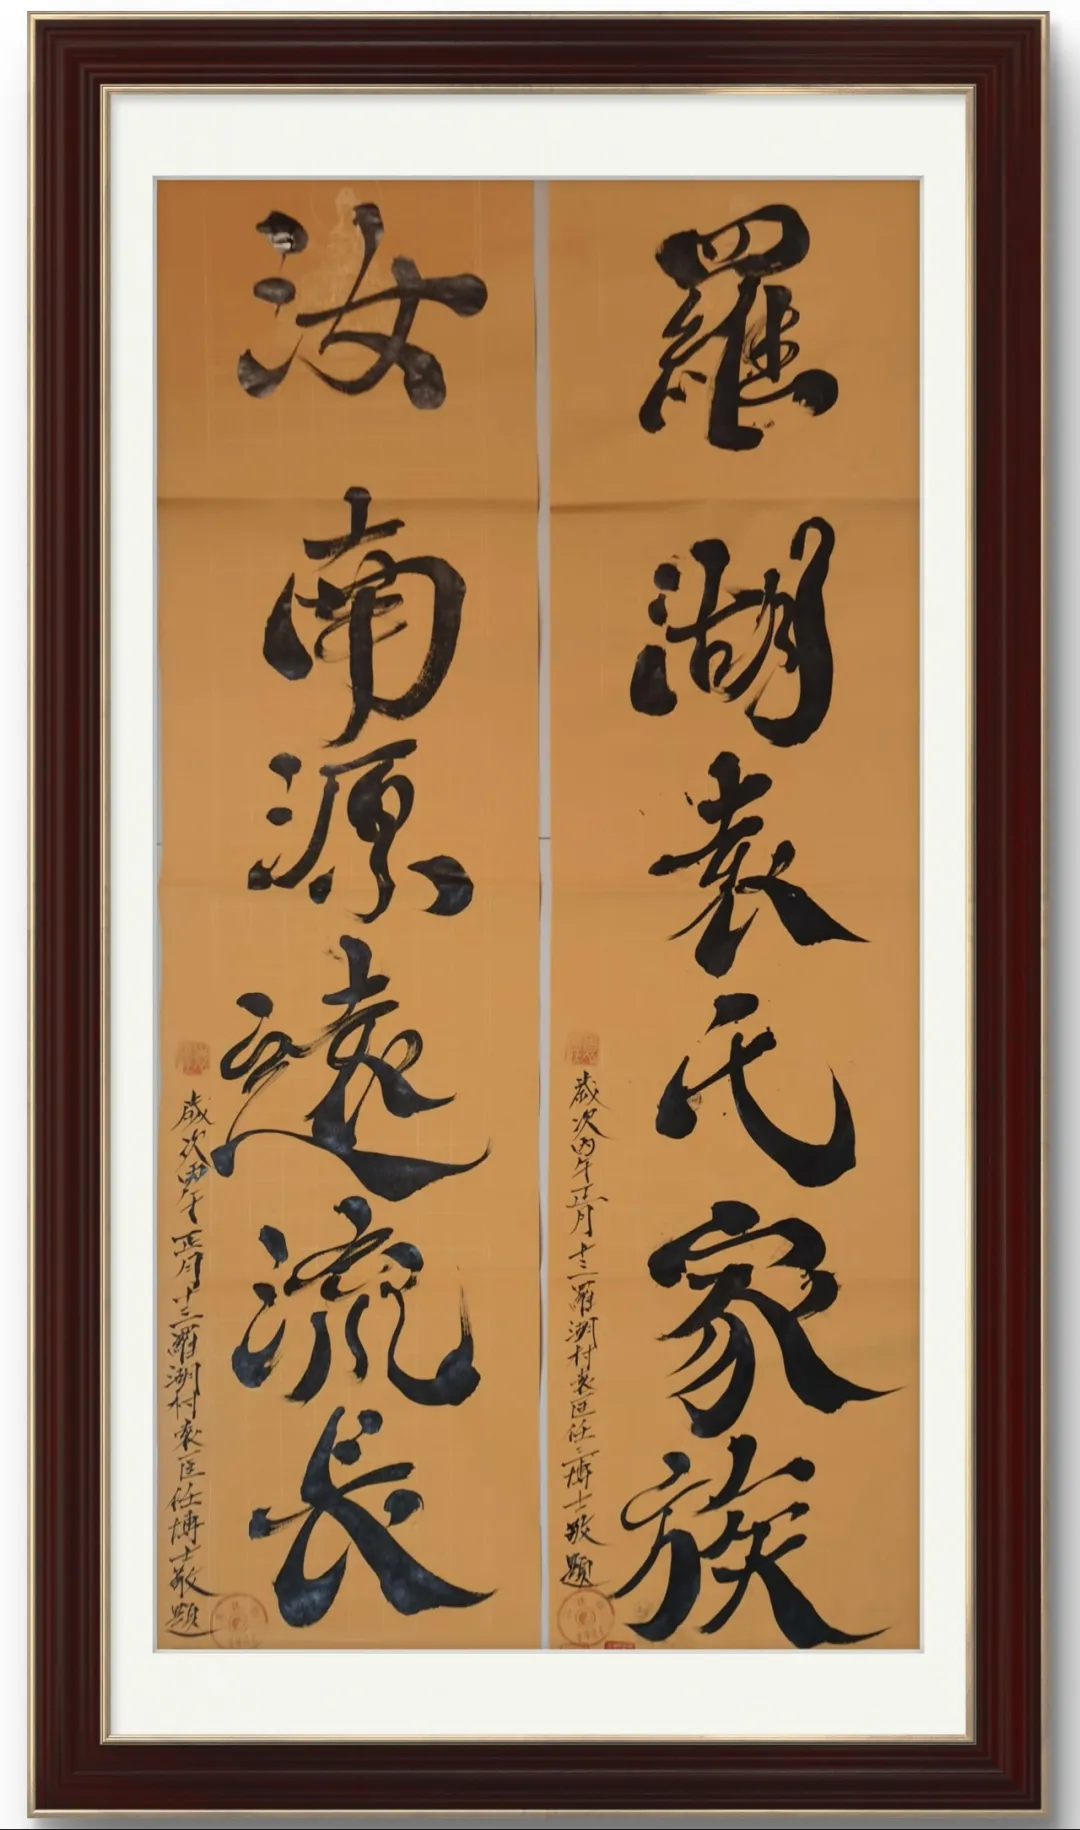 羅湖袁氏家族
歲次丙午正月十三羅湖村袁匡任博士敬題
汝南源遠流長
歲次丙午正月十三羅湖村袁匡任博士敬題